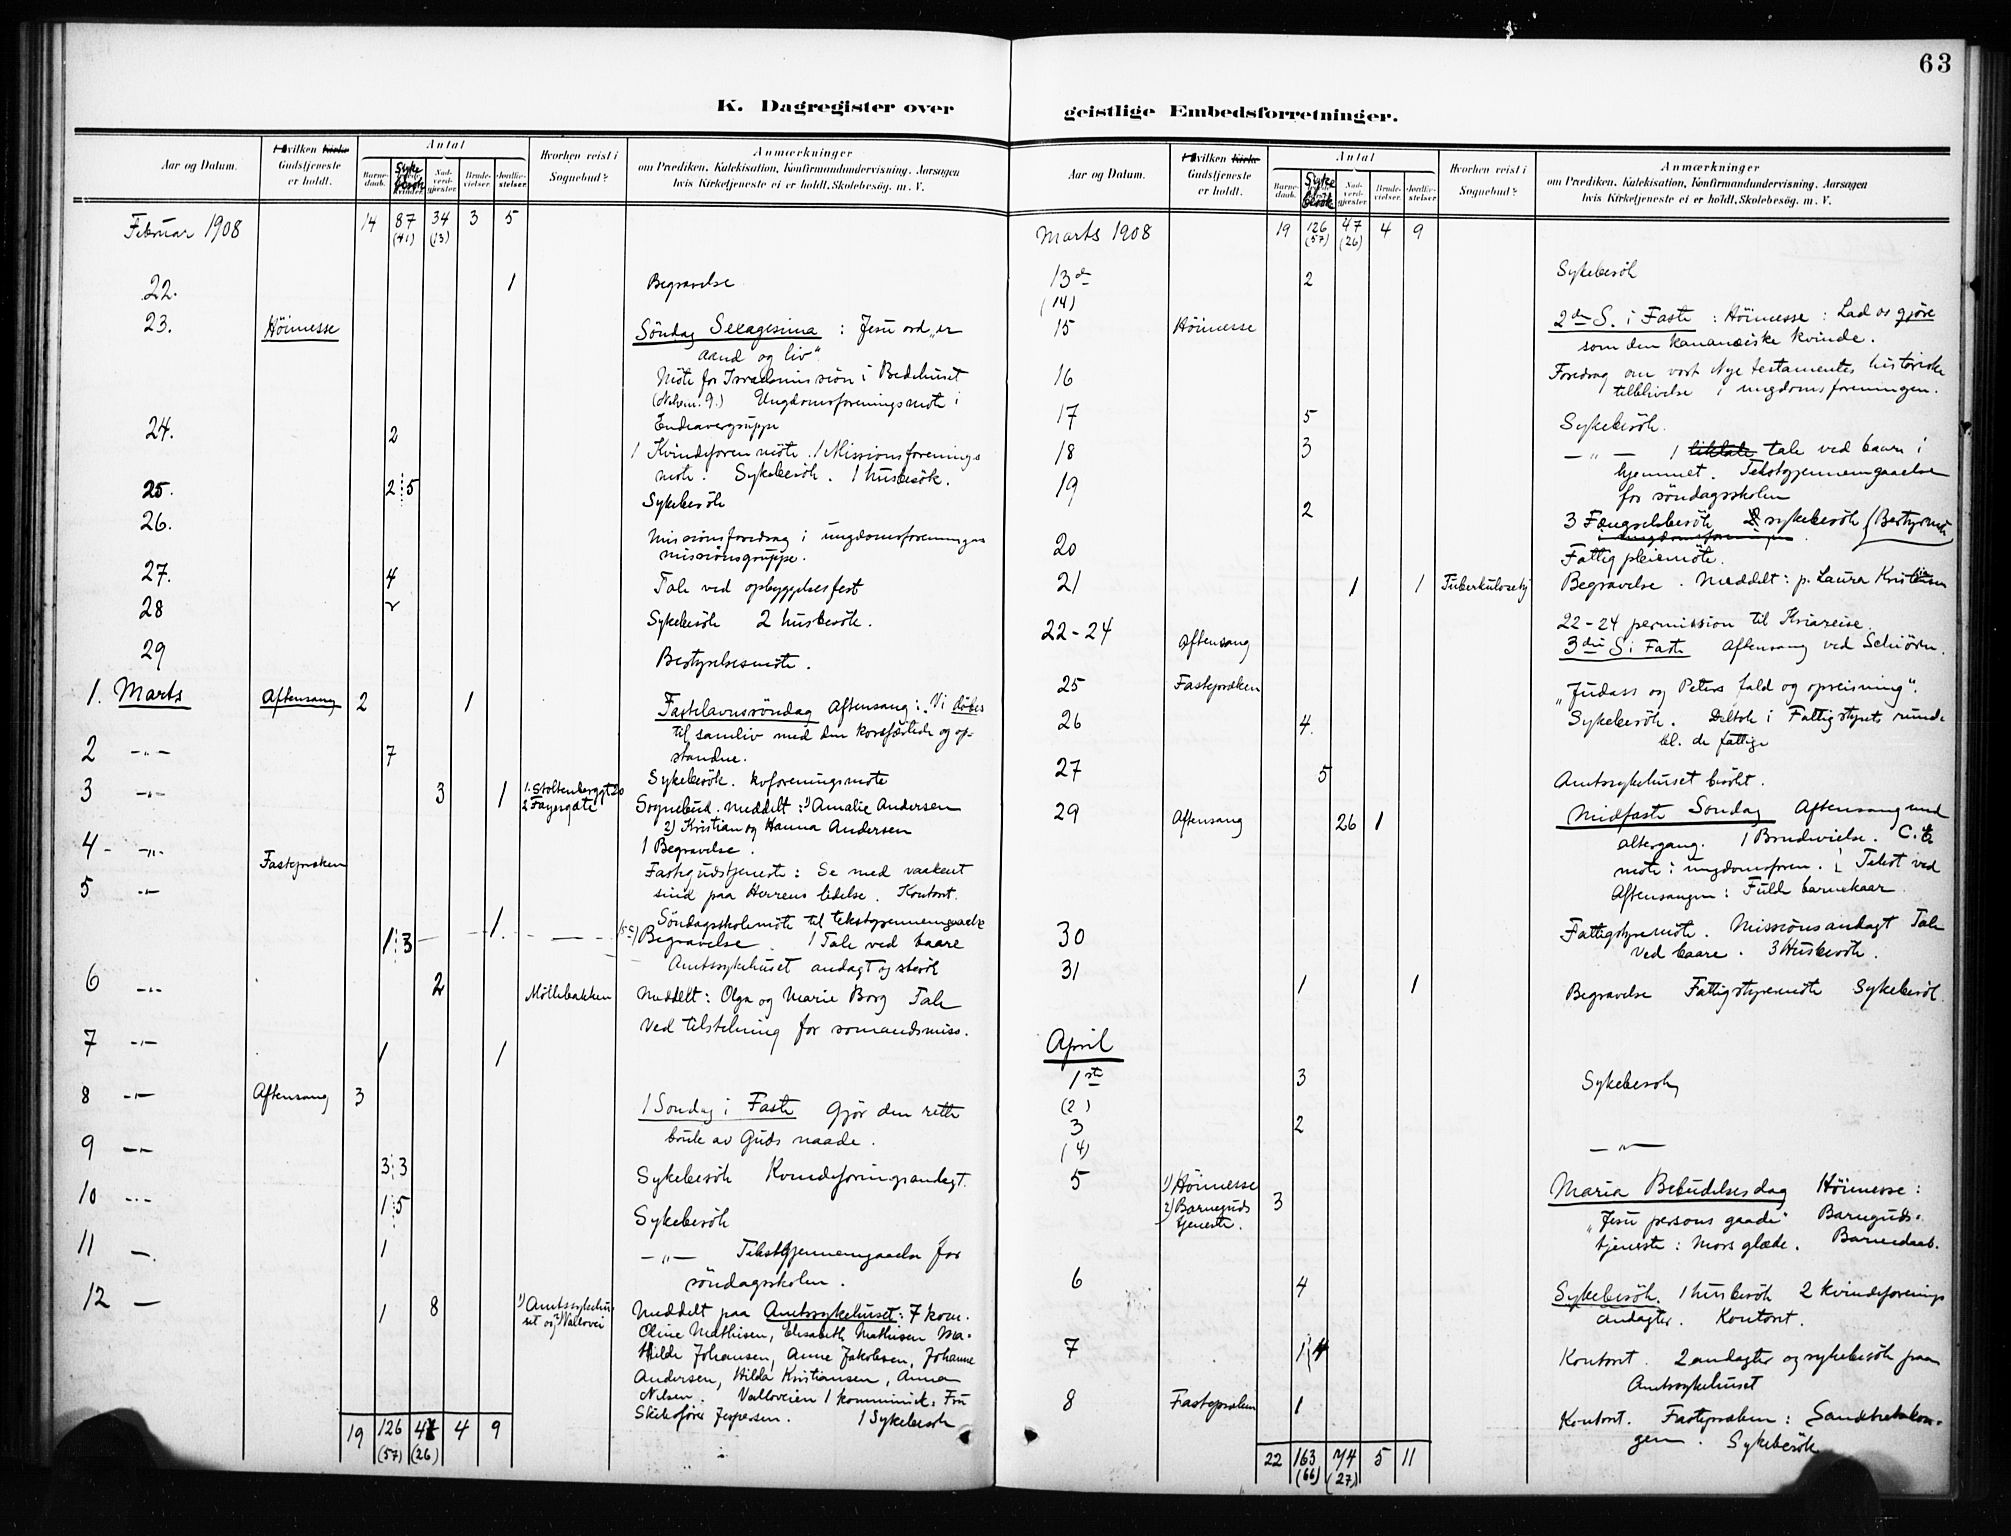 63
K. Dagregister over geistlige Embedsforretninger.
Aar og Datum.
Hvilken Kirke
Gudstjeneste
er holdt.
Antal
Barne-
daab.
Syke
besök
Nad-
verd-
gjester.
Brude-
vielser.
Jordfæ-
stelser.
Hvorhen reist i
Sognebud?
Anmærkninger
om Prædiken, Katekisation, Konfirmandundervisning. Aarsagen
hvis Kirketjeneste ei er holdt, Skolebesøg. m. V.
Februar 1908 14 87 (41) 34 (13) 3 5
22. 1 Begravelse
23. Höimesse Söndag Sexagesima : Jesu ord „er
aand og liv“
Möte for Israelsmission i Bedehuset
Ungdomsforeningsmöte i
Endeavorgruppe
24. 2 1 Kvindeforenmöte. 1 Missionsforenings
möte. Sykebesök. 1 husbesök.
25. 2 5 Sykebesök
26. Missionsforedrag i ungdomsforeningens
missionsgruppe.
27. 4 Tale ved opbyggelsesfest
28 2 Sykebesök 2 husbesök.
29 Bestyrelsesmöte.
1. Marts Aftensang 2 1 Fastelavnssöndag Aftensang: Vi döbes
til samliv med den korsfæstede og op-
standne.
2 -"- 7 Sykebesök. kvforeningsmöte
3 -"- 3 1 1. Stoltenberggt 20
2 Fayesgate Sognebud. Meddelt: 1) Amalie Andersen
2) Kristian og Hanna Andersen
1 Begravelse.
4 -"- Fastepræken Fastegudstjeneste: Se med vaakent
sind paa Herrens lidelse. Kontoret.
5 -"- Söndagsskolemöte til tekstgjennemgaaelse
1 3 1. Begravelse. 1 Tale ved baare
Amtssykehuset andagt og besök
6 -"- 2 Möllebakken Meddelt: Olga og Marie Borg Tale
ved tilstelning for sömandsmiss.
7 -"- 1 1
8 -"- Aftensang 3 1 Söndag i Faste Gjör den rette
bruk av Guds naade.
9 -"- 3 3 Sykebesök Kvindeforingsandagt.
10 -"- 1 5 Sykebesök
11 - 1 -"- Tekstgjennemgaaelse for
söndagsskolen.
12 - 1 8 1) Amtssykehu-
set og 2) Valloveien Meddelt paa Amtssykehuset: 7 kom.
Oline Mathisen, Elisabeth Mathisen Ma-
thilde Johansen, Anne Jakobsen, Johanne
Andersen, Hilda Kristiansen, Anna
Nilsen. Valloveien 1 kommunik: Fru
Skibsförer Jespersen. 1 Sykebesök
19 126 (57) 47 (26) 4 9
Aar og Datum.
Hvilken Kirke
Gudstjeneste
er holdt.
Antal
Barne-
daab.
Syke
besök
Nad-
verd-
gjester.
Brude-
vielser.
Jordfæ-
stelser.
Hvorhen reist i
Sognebud?
Anmærkninger
om Prædiken, Katekisation, Konfirmandundervisning. Aarsagen
hvis Kirketjeneste ei er holdt, Skolebesøg. m. V.
Marts 1908 19 126 (57) 47 (26) 4 9
13de 2 Sykebesök
(14)
15 Höimesse 2den S. i Faste : Höimesse : Lad os gjöre
som den kananæiske kvinde.
16 Foredrag om vort Nye testamentes historiske
tilblivelse i ungdomsforeningen.
17 5 Sykebesök.
18 3 -"- 1 liktale tale ved baare i
hjemmet. Tekstgjennemgaaelse
for söndagsskolen
19 2 3 Fængselsbesök 2 sykebesök Bestyrmöte
i ungdomsforeningen
20 Fattigpleiemöte.
21 1 1 Tuberkulosehj Begravelse. Meddelt: p. Laura Kristiansen
22-24 Aftensang 22-24 permission til
3die S. i Faste Aftensang ved Schiörn.
25 Fastepræken „Judas's og Peters fald og opreisning“.
26 4. Sykebesök. Deltok i Fattigstyrets runde
bl. de fattige
27 5 Amtssykehuset besökt.
29 Aftensang 26 1 Midfaste Söndag Aftensang med
altergang. 1 Brudevielse. C.E
möte i ungdomsforen. Tekst ved
Aftensangen: Fulde barnekaar
30 Fattigstyremöte. Missionsandagt Tale
ved baare. 3 Husbesök.
31 1 1 Begravelse Fattigstyremöte Sykebesök
April
1ste 3 Sykebesök
(2)
3 2 -"-
(4)
5 1) Höimesse
2) Barneguds
tjeneste. 3 Maria Bebudelsesdag Höimesse :
„Jesu persons gaade“ Barneguds-
tjeneste : Mors glæde. Barnedaab.
6 4 Sykebesök. 1 husbesök 2 kvindeforenings
andagter. Kontoret.
7 1 4 Kontoret. 2 andagter og sykebesök paa
Amtssykehuset
8 Fastepræken 1 Kontoret. Fastepræken : Sandhetskon-
gen. Sykebesök
22 163 (66) 74 (27) 5 11